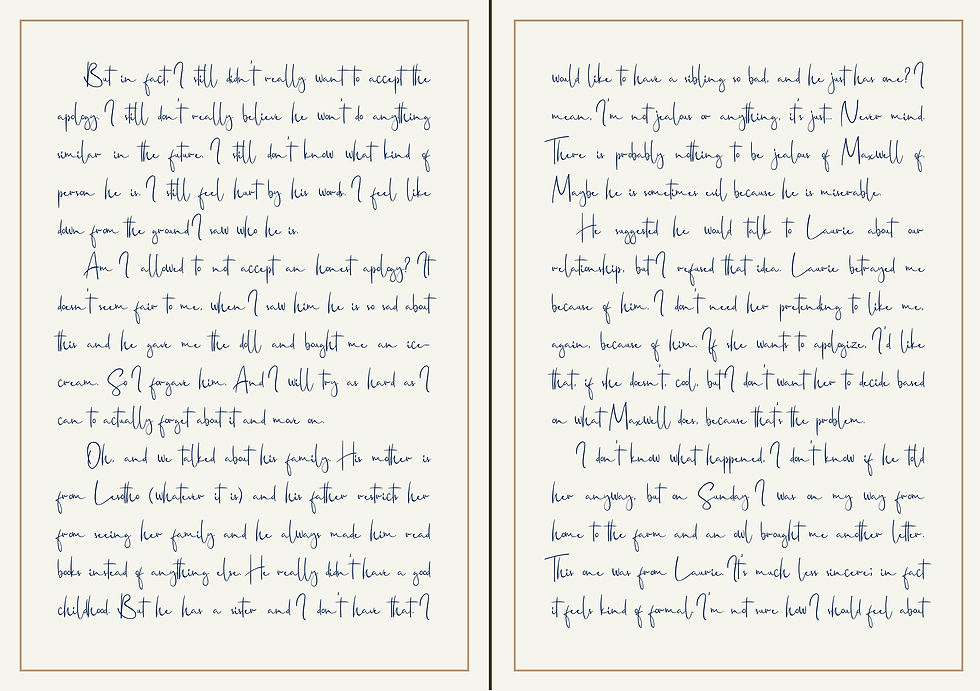 But in fact, I still didn't really want to accept the
apology. I still don't really believe he won't do anything
similar in the future. I still don't know what kind of
person he is. I still feel hurt by his words. I feel like
down from the ground I saw who he is.
Am I allowed to not accept an honest apology? It
doesn't seem fair to me, when I saw him he is so sad about
this and he gave me the doll and bought me an ice-
cream. So I forgave him. And I will try as hard as I
can to actually forget about it and move on.
Oh, and we talked about his family. His mother is
from Lesotho (whatever it is) and his father restricts her
from seeing her family and he always made him read
books instead of anything else. He really didn't have a good
childhood. But he has a sister and I don't have that. I
would like to have a sibling so bad, and he just has one? I
mean, I'm not jealous or anything, it's just... Never mind.
There is probably nothing to be jealous of Maxwell of.
Maybe he is sometimes evil because he is miserable.
He suggested he would talk to Laurie about our
relationship, but I refused that idea. Laurie betrayed me
because of him. I don't need her pretending to like me,
again, because of him. If she wants to apologize, I'd like
that, if she doesn't, cool, but I don't want her to decide based
on what Maxwell does, because that's the problem.
I don't know what happened, I don't know if he told
her anyway, but on Sunday I was on my way from
home to the farm and an owl brought me another letter.
This one was from Laurie. It's much less sincere; in fact
it feels kind of formal. I'm not sure how I should feel about